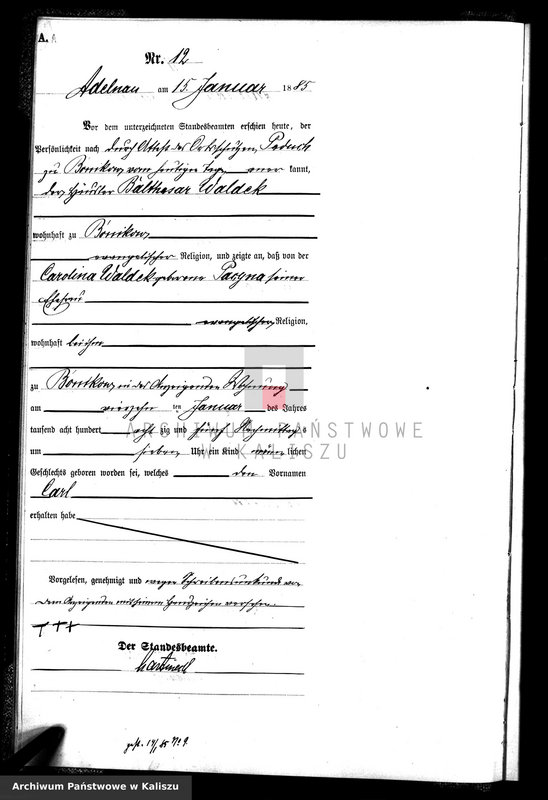 A.
Nr. 12
Adelnau am 15. Januar 1885
Vor dem unterzeichneten Standesbeamten erschien heute, der
Persönlichkeit nach durch Attest des Ortsschulzen
zu Bonikow vom heutigen Tage kannt,
der Häusler Balthasar Waldek
wohnhaft zu Bonikow
evangelischer Religion, und zeigte an, daß von der
Carolina Waldek geborene seiner
Ehefrau
evangelischer Religion,
wohnhaft bei ihm
zu Bonikow in des Anzeigenden Wohnung
am vierzehn ten Januar des Jahres
tausend acht hundert acht zig und fünf Nachmittags
um sieben Uhr ein Kind männlichen
Geschlechts geboren worden sei, welches den Vornamen
Carl
erhalten habe
Vorgelesen, genehmigt und wegen Schreibensunkunde von
dem Anzeigenden mit seinem Handzeichen versehen.
+++
Der Standesbeamte.
ARCHIWUM PAŃSTWOWE
W KALISZU
Archiwum Państwowe w Kaliszu